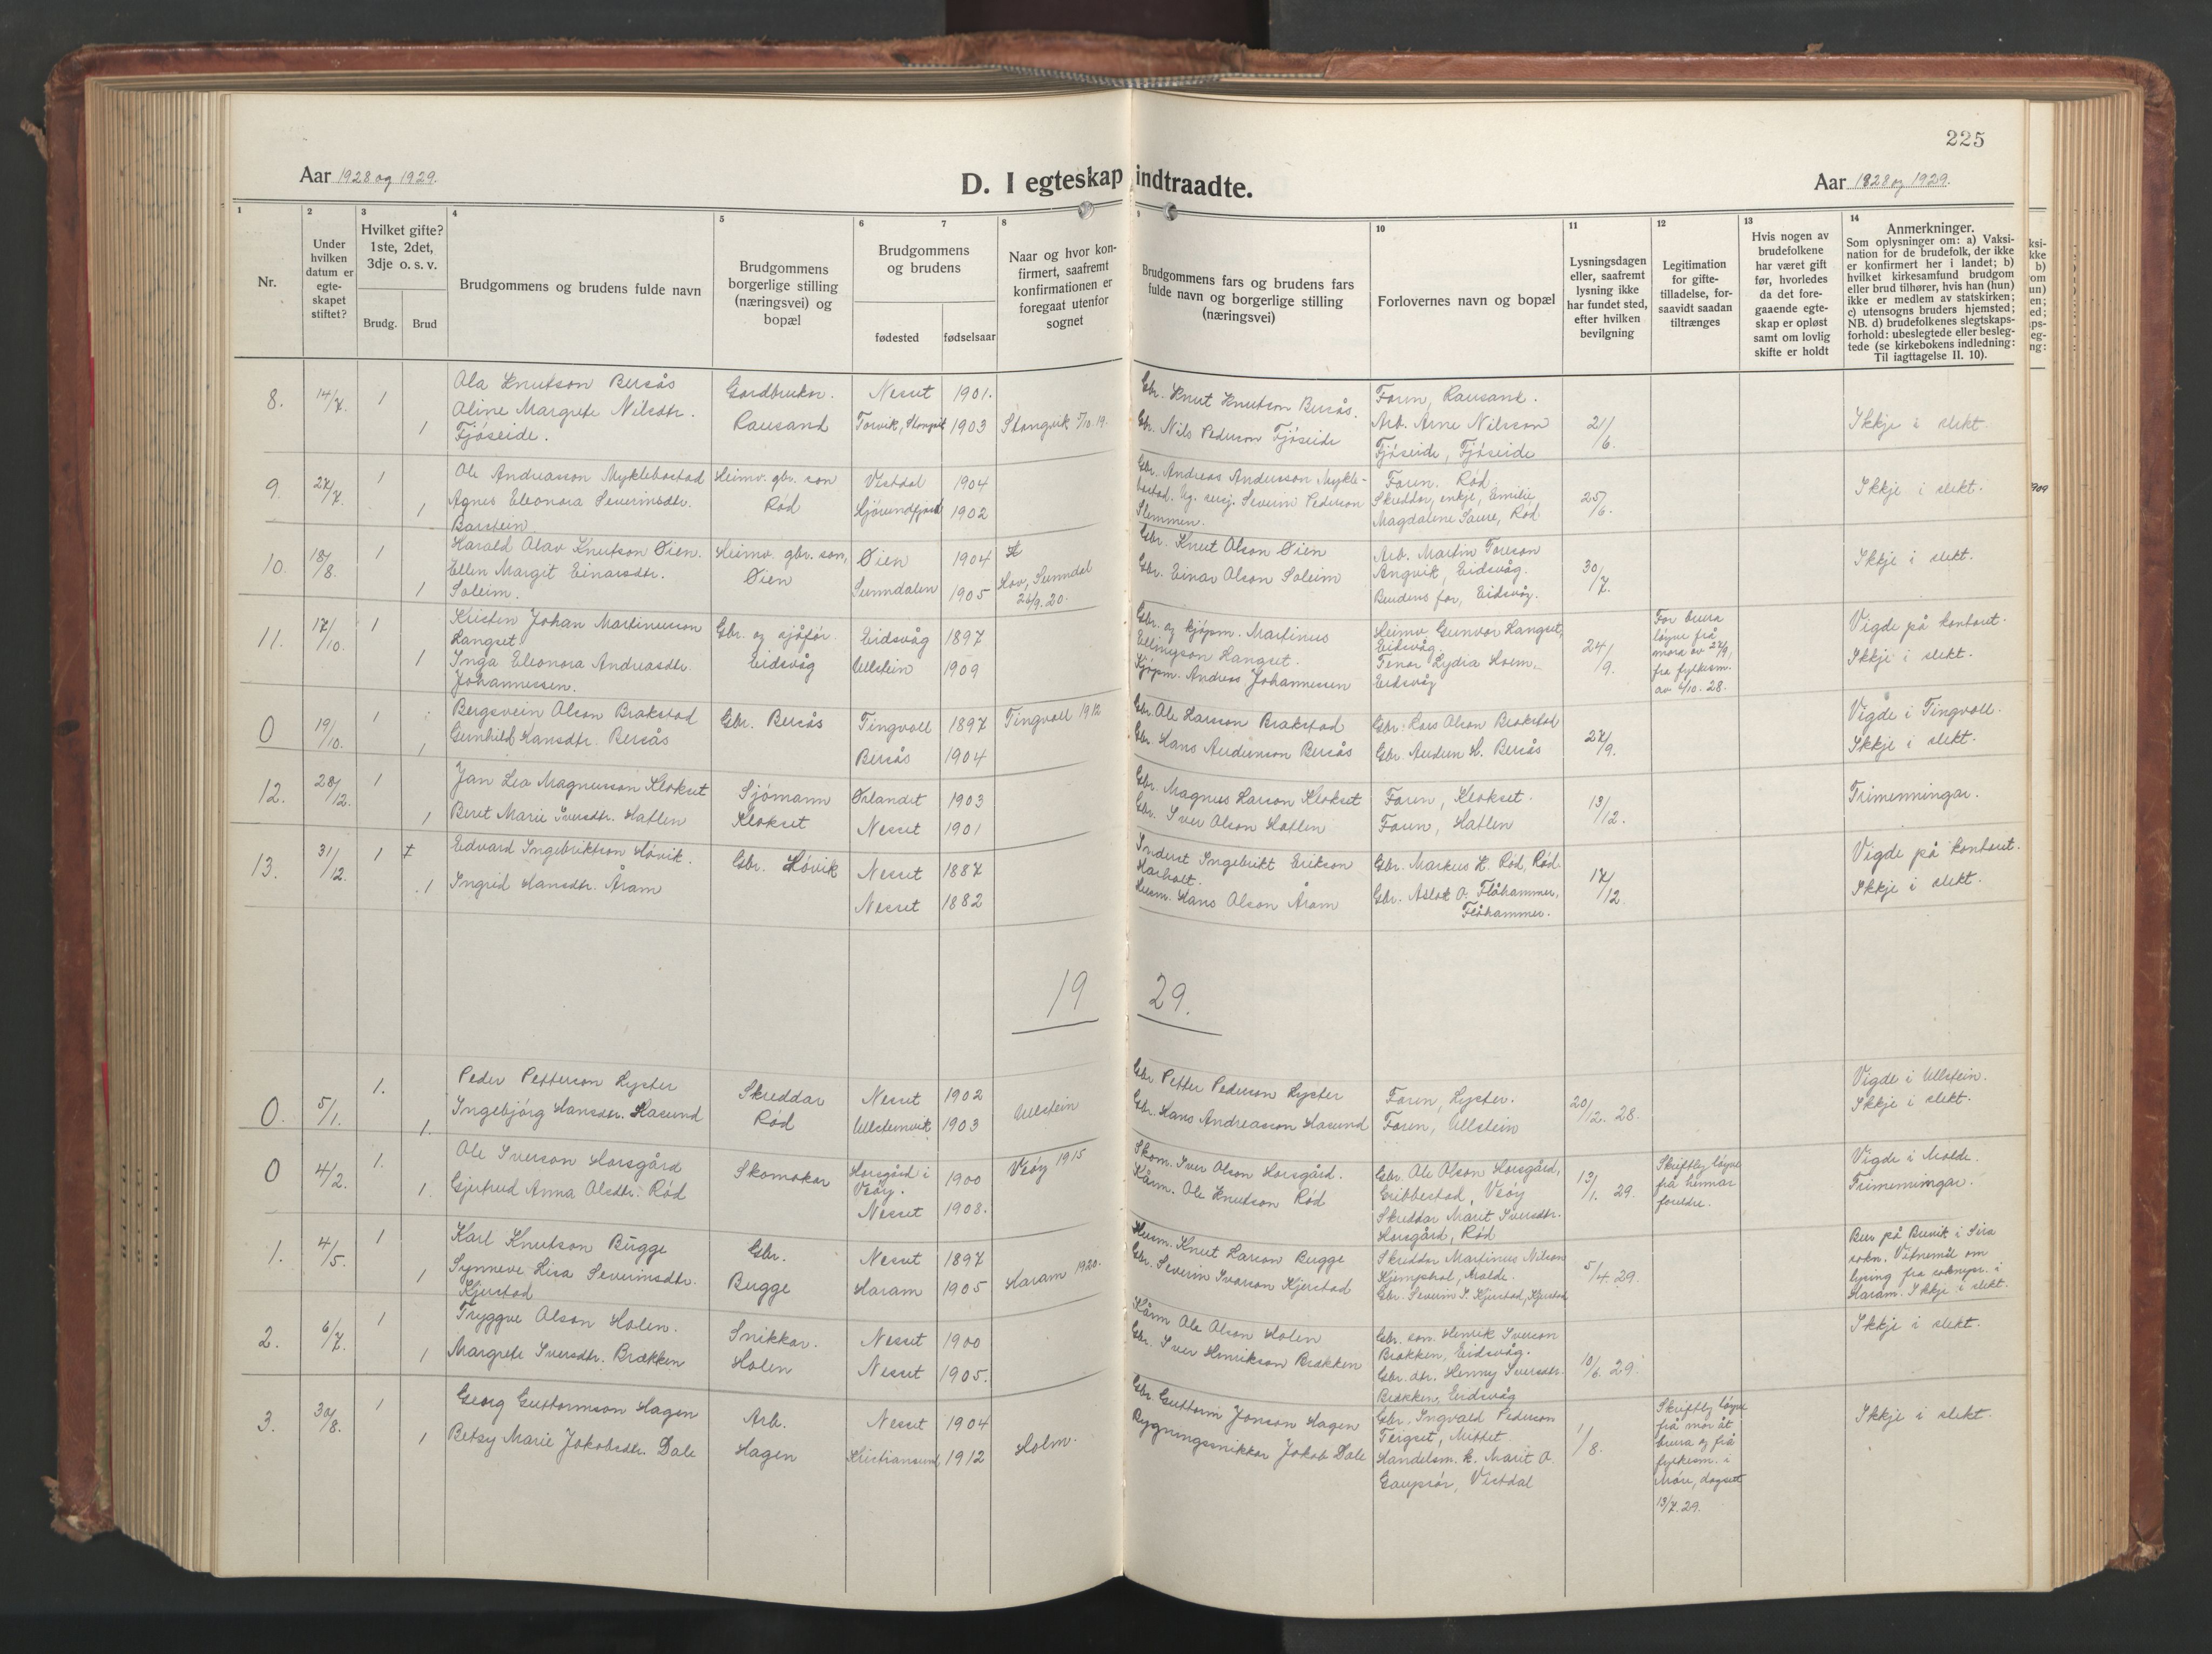 225
Aar 1928 og 1929.
D. I egteskap indtraadte.
Aar 1928 og 1929.
1
Nr.
2
Under
hvilken
datum er
egte-
skapet
stiftet?
3
Hvilket gifte?
1ste, 2det,
3dje o. s. v.
Brudg.
Brud
4
Brudgommens og brudens fulde navn
5
Brudgommens
borgerlige stilling
(næringsvei) og
bopæl
6
7
Brudgommens
og brudens
fødested
fødselsaar
8
Naar og hvor kon-
firmert, saafremt
konfirmationen er
foregaat utenfor
sognet
9
Brudgommens fars og brudens fars
fulde navn og borgerlige stilling
(næringsvei)
10
Forlovernes navn og bopæl
11
Lysningsdagen
eller, saafremt
lysning ikke
har fundet sted,
efter hvilken
bevilgning
12
Legitimation
for gifte-
tilladelse, for-
saavidt saadan
tiltrænges
13
Hvis nogen av
brudefolkene
har været gift
før, hvorledes
da det fore-
gaaende egte-
skap er opløst
samt om lovlig
skifte er holdt
14
Anmerkninger.
Som oplysninger om: a) Vaksi-
nation for de brudefolk, der ikke
er konfirmert her i landet; b)
hvilket kirkesamfund brudgom
eller brud tilhører, hvis han (hun)
ikke er medlem av statskirken;
c) utensogns bruders hjemsted;
NB. d) brudefolkenes slegtskaps-
forhold: ubeslegtede eller besleg-
tede (se kirkebokens indledning:
Til iagttagelse II. 10).
8. 14/7. 1 1
Ola Knutson Bersås
Aline Margrete Nilsdtr.
Fjöseide.
Gardbrukar.
Rausand
Nesset 1901.
Torvik, Stangvik 1903
Stangvik 5/10.19.
Gbr. Knut Knutson Bersås.
Gbr. Nils Pederson Fjöseide
Faren, Rausand.
Arb. Arne Nilsson
Fjöseide, Fjöseide
21/6.
Ikkje i slekt.
9. 27/7. 1 1
Ole Andreasson Myklebostad
Agnes Eleonora Severinsdtr.
Barstein
Heimv. gbr. son
Rød
Vistdal 1904
Hjörundfjord 1902
Gbr. Andreas Andersson Mykle-
bostad. Severin Pederson
Slemmen.
Faren. Rød
Skreddar, enkje, Emilie
Magdalene Saure, Rød.
25/6.
Ikkje i slekt.
10. 18/8. 1 1
Harald Olav Knutson Øien.
Ellen Margit Einarsdtr.
Soleim.
Heimv. gbr. son,
Øien
Øien 1904
Sunndalen 1905
Hov, Sunndal
26/9.20.
Gbr. Knut Olson Øien
Gbr. Einar Olson Soleim
Arb. Martin Toreson
Angvik, Eidsvåg.
Brudens far, Eidsvåg.
30/7.
Ikkje i slekt.
11. 17/10. 1 1
Kristen Johan Martinusson
Langset
Inga Eleonora Andreasdtr.
Johannessen.
Gbr. og sjåför.
Eidsvåg
Eidsvåg 1897
Ullstein 1909
Gbr. og kjöpm. Martinus
Ellingson Langset.
Kjöpm. Andreas Johannessen
Heimv. Gunvor Langset,
Eidsvåg.
Tenar Lydia Hoem,
Eidsvåg
24/9.
For brura
löyve frå
mora av 27/9,
fra fylkesm.
av 6/10.28.
Vigde på kontoret.
Ikkje i slekt.
0 19/10. 1 1
Bergsvein Olson Brakstad
Gunhild Hansdtr. Bersås
Gbr. Bersås
Tingvoll 1897
Bersås 1904
Tingvoll 1912
Gbr. Ole Larsson Brakstad
Gbr. Hans Audunson Bersås
Gbr. Lars Olson Brakstad
Gbr. Audun H. Bersås
27/9.
Vigde i Tingvoll.
Ikkje i slekt.
12. 28/12. 1 1
Jan Leo Magnusson Klokset
Beret Marie Iversdtr. Hatlen
Sjömann
Klokset
Ørlandet 1903
Nesset 1901
Gbr. Magnus Larson Klokset
Gbr. Iver Olson Hatlen
Faren, Klokset.
Faren, Hatlen
13/12.
Trimenningar.
13. 31/12. 1 1
Edvard Ingebriktson Hövik.
Ingrid Hansdtr. Åram
Gbr. Hövik
Nesset 1887
Nesset 1882
Inderst Ingebrikt Erikson
Harholt.
Husm. Hans Olson Åram
Gbr. Markus K. Rød, Rød.
Gbr. Aslak O. Flåhammer,
Flåhammer.
17/12.
Vigde på kontoret.
Ikkje i slekt.
19 29.
0. 5/1. 1. 1.
Peder Petterson Lyster
Ingebjörg Hansdtr. Hasund
Skreddar
Rød
Nesset 1902
Ullsteinvik 1903
Ullstein
Gbr. Petter Pederson Lyster
Gbr. Hans Andreasson Hasund
Faren, Lyster.
Faren, Ullstein
20/12.28.
Vigde i Ullstein.
Ikkje i slekt.
0 4/2. 1. 1.
Ole Iverson Horsgård
Gjertrud Anna Olsdtr. Rød
Skomakar
Horsgård i
Vøy.
1900
Nesset 1908.
Vøy 1915
Skom. Iver Olson Horsgård.
Kårm. Ole Knutson Rød
Gbr. Ole Olson Horsgård,
Gribbestad, Vøy
Skreddar Marit Iversdtr.
Horsgård, Rød
13/1.29.
Skriftleg löyve
frå hennar
foreldre.
Vigde i Molde.
Trimenningar.
1. 4/5. 1 1
Karl Knutson Bugge
Synneve Lisa Severinsdtr.
Kjerstad
Gbr.
Bugge
Nesset 1897
Haram 1905
Haram 1920.
Husm. Knut Larson Bugge
Gbr. Severin Ivarson Kjerstad
Skreddar Martinus Nilson
Kjempehol, Molde.
Gbr. Severin I. Kjerstad, Kjerstad
5/4.29.
Bur på Buvik i Sira
sokn. Vitnemål om
lysing fra soknepr. i
Haram. Ikkje i slekt.
2. 6/7. 1 1
Tryggve Olson Holen.
Margrete Iversdtr. Brækken
Snikkar.
Holen
Nesset 1900
Nesset 1905.
Kårm Ole Olson Holen
Gbr. Iver Henrikson Brækken
Gbr. son. Henrik Iverson
Brækken, Eidsvåg.
Gbr. dtr. Henny Iversdtr.
Brækken, Eidsvåg
10/6.29.
Ikkje i slekt.
3. 30/8. 1 1
Georg Guttormson Hagen
Betsy Marie Jakobsdtr. Dale
Arb.
Hagen
Nesset 1904
Kristiansund 1912
Holm.
Gbr. Guttorm Jonson Hagen
Bygningssnikkar Jakob Dale
Gbr. Ingvald Pederson
Tergset, Mittet.
Handelsm. k. Marit O.
Gauprör, Vistdal
1/8.
Skriftleg löyve
frå mor åt
brura og frå
fylkesm. i
Möre, dagsett
13/7.29.
Ikkje i slekt.